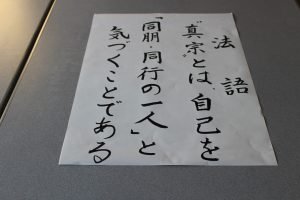 法語
“真宗”とは、自己を
「同朋・同行の一人」と
気づくことである